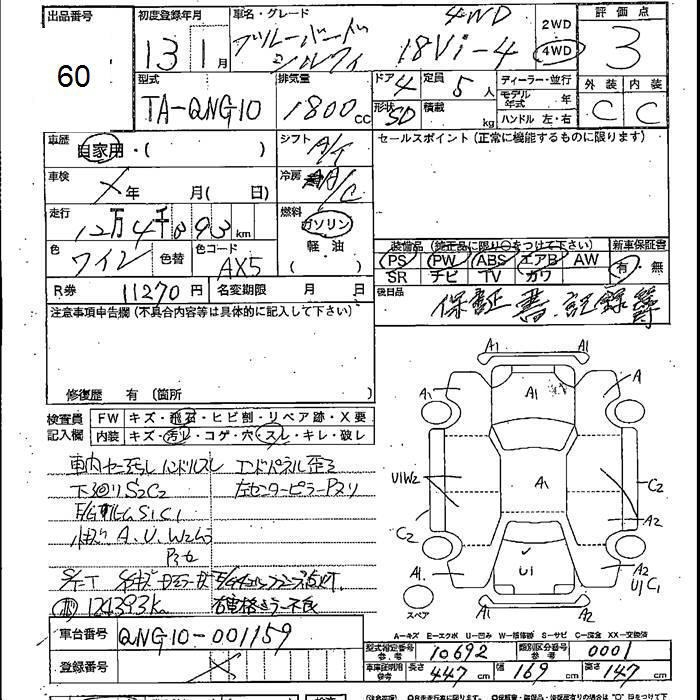 出品番号 初度登録年月 車名・グレード 4WD 2WD 評価点
60 13 1月 ブルーバード シルフィ 18Vi-4 4WD 3
型式 排気量 ドア 4 定員 5人 ディーラー・並行 外装 内装
TA-QNG10 1800cc 形状 SD 積載 kg モデル年式 年 C C
ハンドル 左・右
車歴 自家用・( ) シフト セールスポイント (正常に機能するものに限ります)
車検 X年 月( 日) 冷房 A/C
走行 12万4千893km 燃料 ガソリン
軽油
( )
色 ワイン 色替 色コード AX5
装備品 (純正品に限り○をつけて下さい) 新車保証書
PS PW ABS エアB AW 有・無
SR ナビ TV カワ
R券 11270円 名変期限 月 日 後日品 保証書 記録簿
注意事項申告欄 (不具合内容等は具体的に記入して下さい)
修復歴 有 (箇所
検査員 FW キズ・飛石・ヒビ割・リペア跡・X要
記入欄 内装 キズ・汚れ・コゲ・穴・スレ・キレ・破レ
A1 A1
A1 A1 A
U1W2 A1 C2
C2 A2
A1 U1 A2 U1 C1
スペア A1 A2
車内 ハンドルスレ エンドパネル歪ミ
下回りS2C2 左センターピラーP
S1C1
A.U.W2
124393K
A−キズ E−エクボ U−凹み W−板修跡 S−サビ C−腐食 XX−交換済
車台番号 QNG10-001159 型式指定番号 参考 10692 類別区分番号 参考 0001
登録番号 X 車庫証明用 参考 長さ 447cm 幅 169cm 高さ 147cm